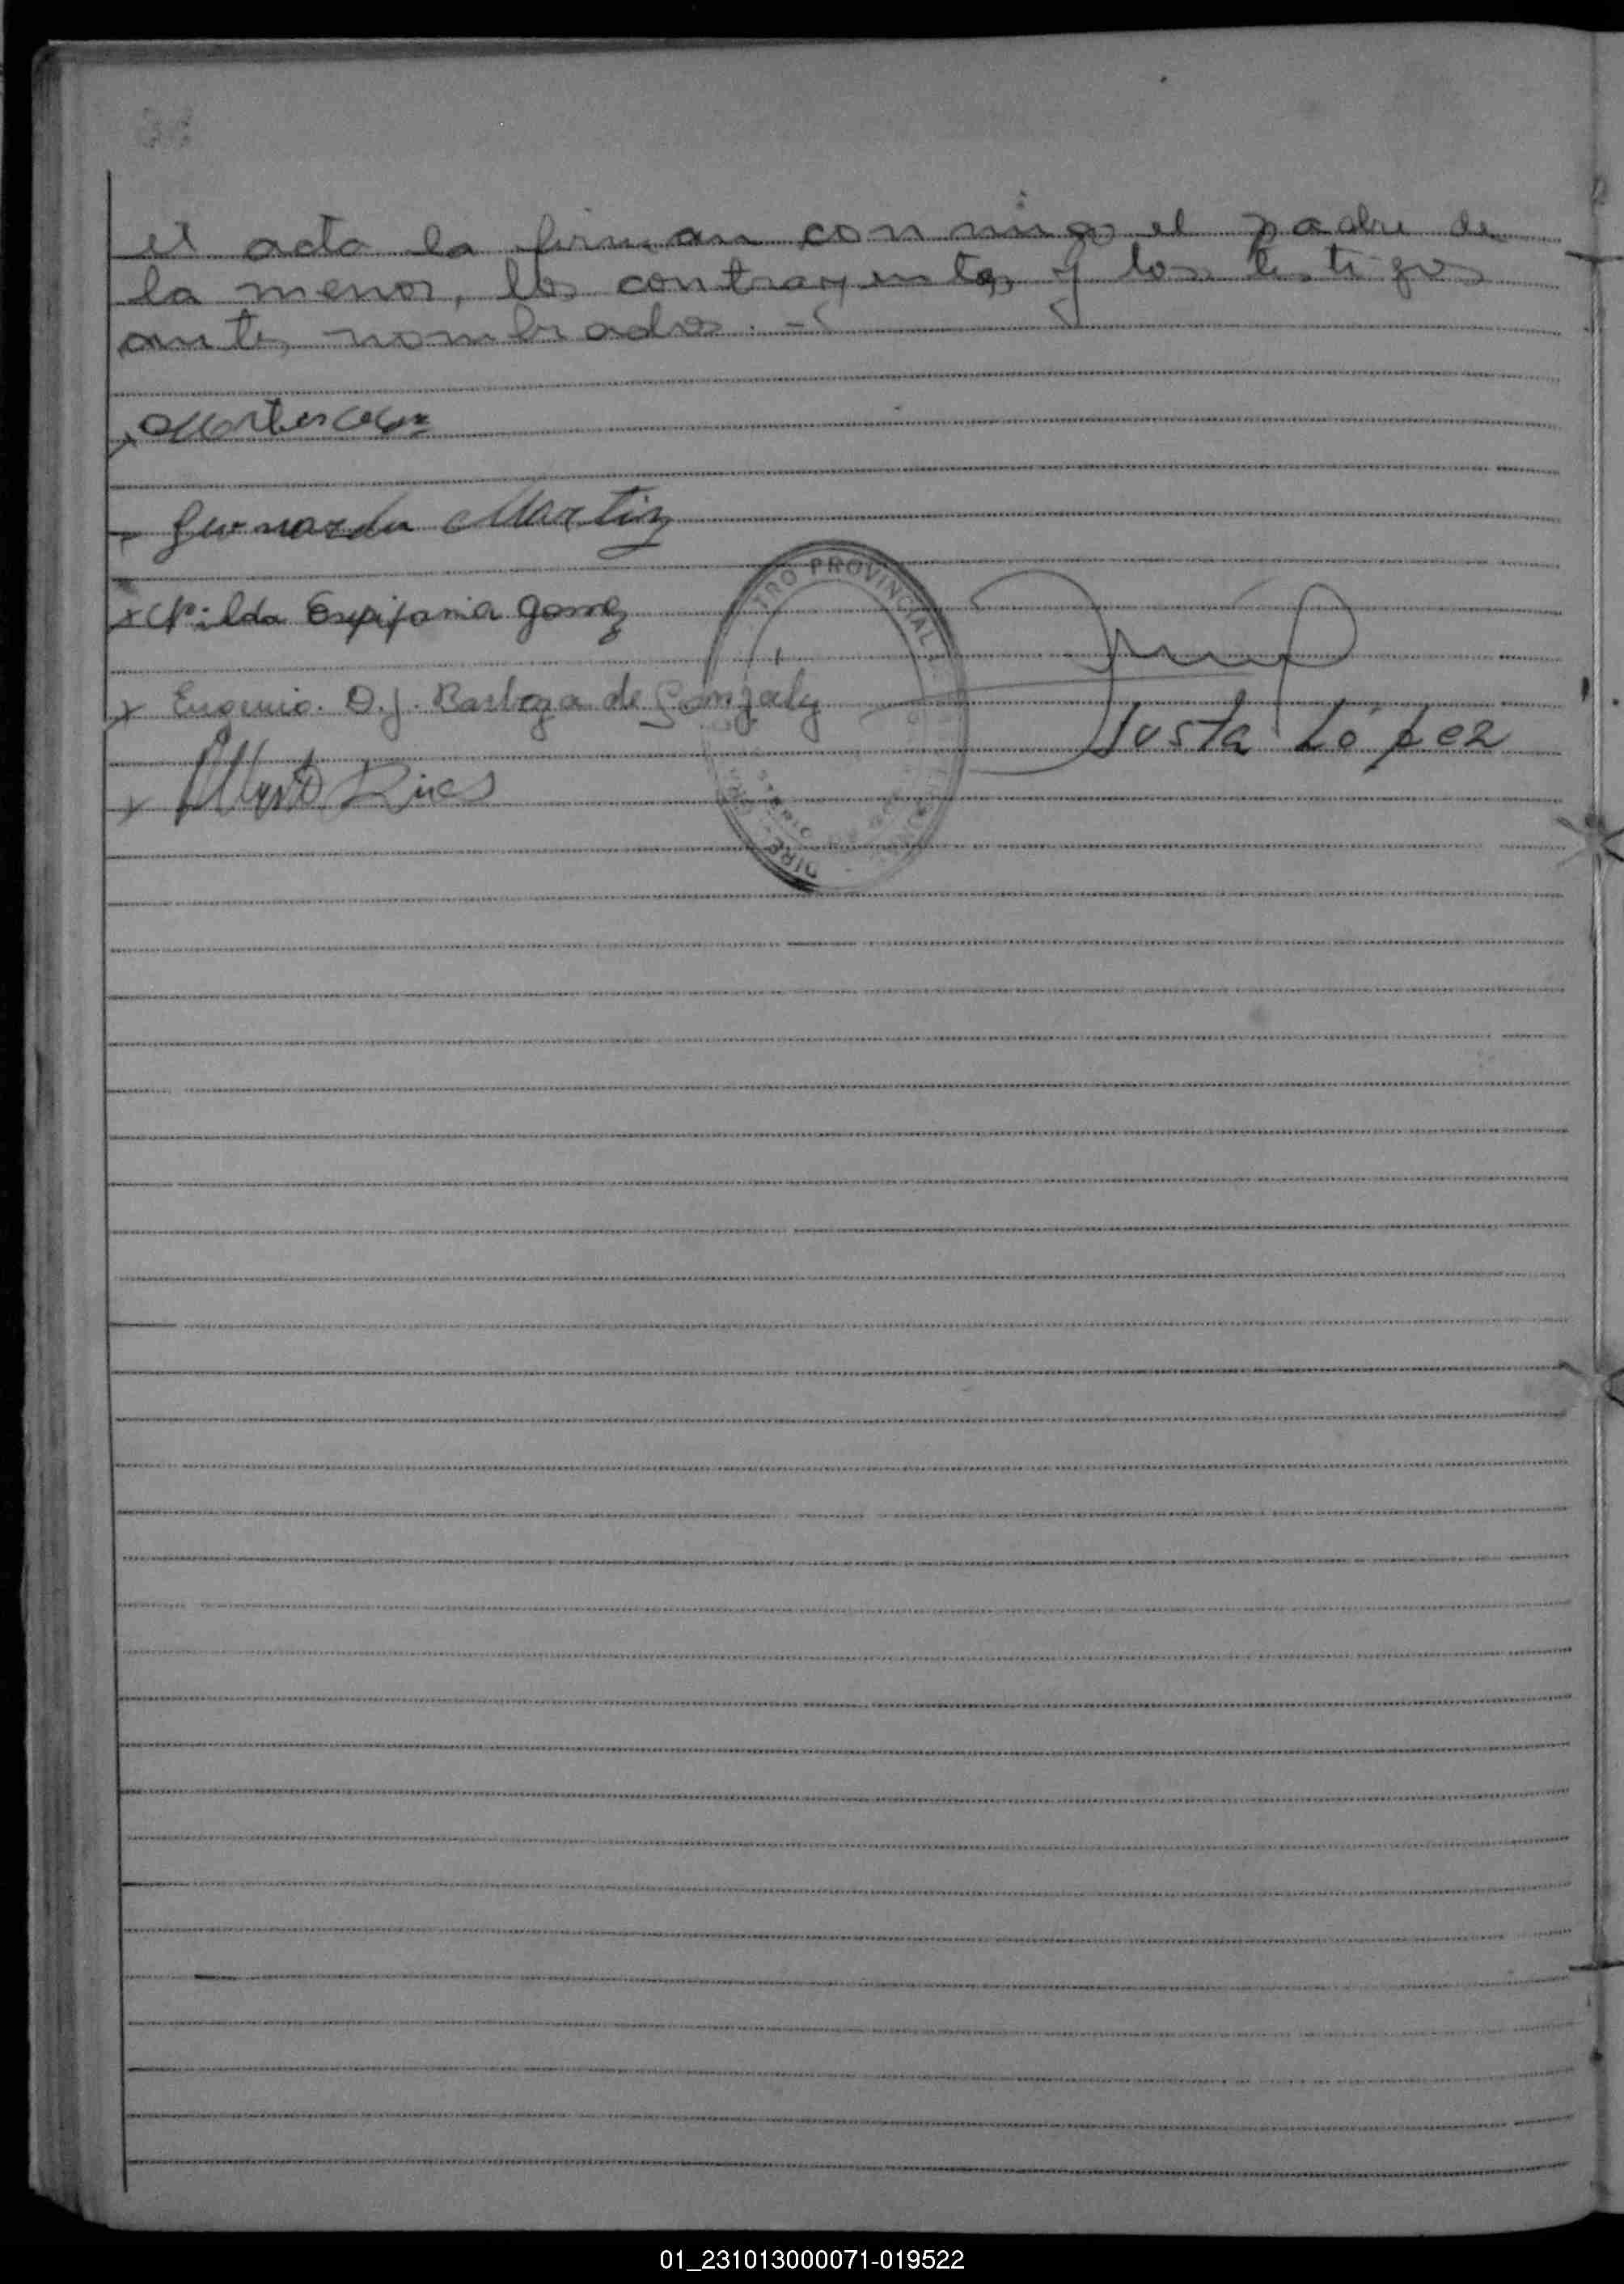 el acta la firman conmigo el padre de
la menor, los contrayentes y los testigos
antes nombrados. -
Martin
x Nilda Epifania Gomez
x Eugenia. D. J. Barboza de Gonzalez
Justa López
x Alberto Rios
TRO PROVINCIAL
DIRE
01_231013000071-019522